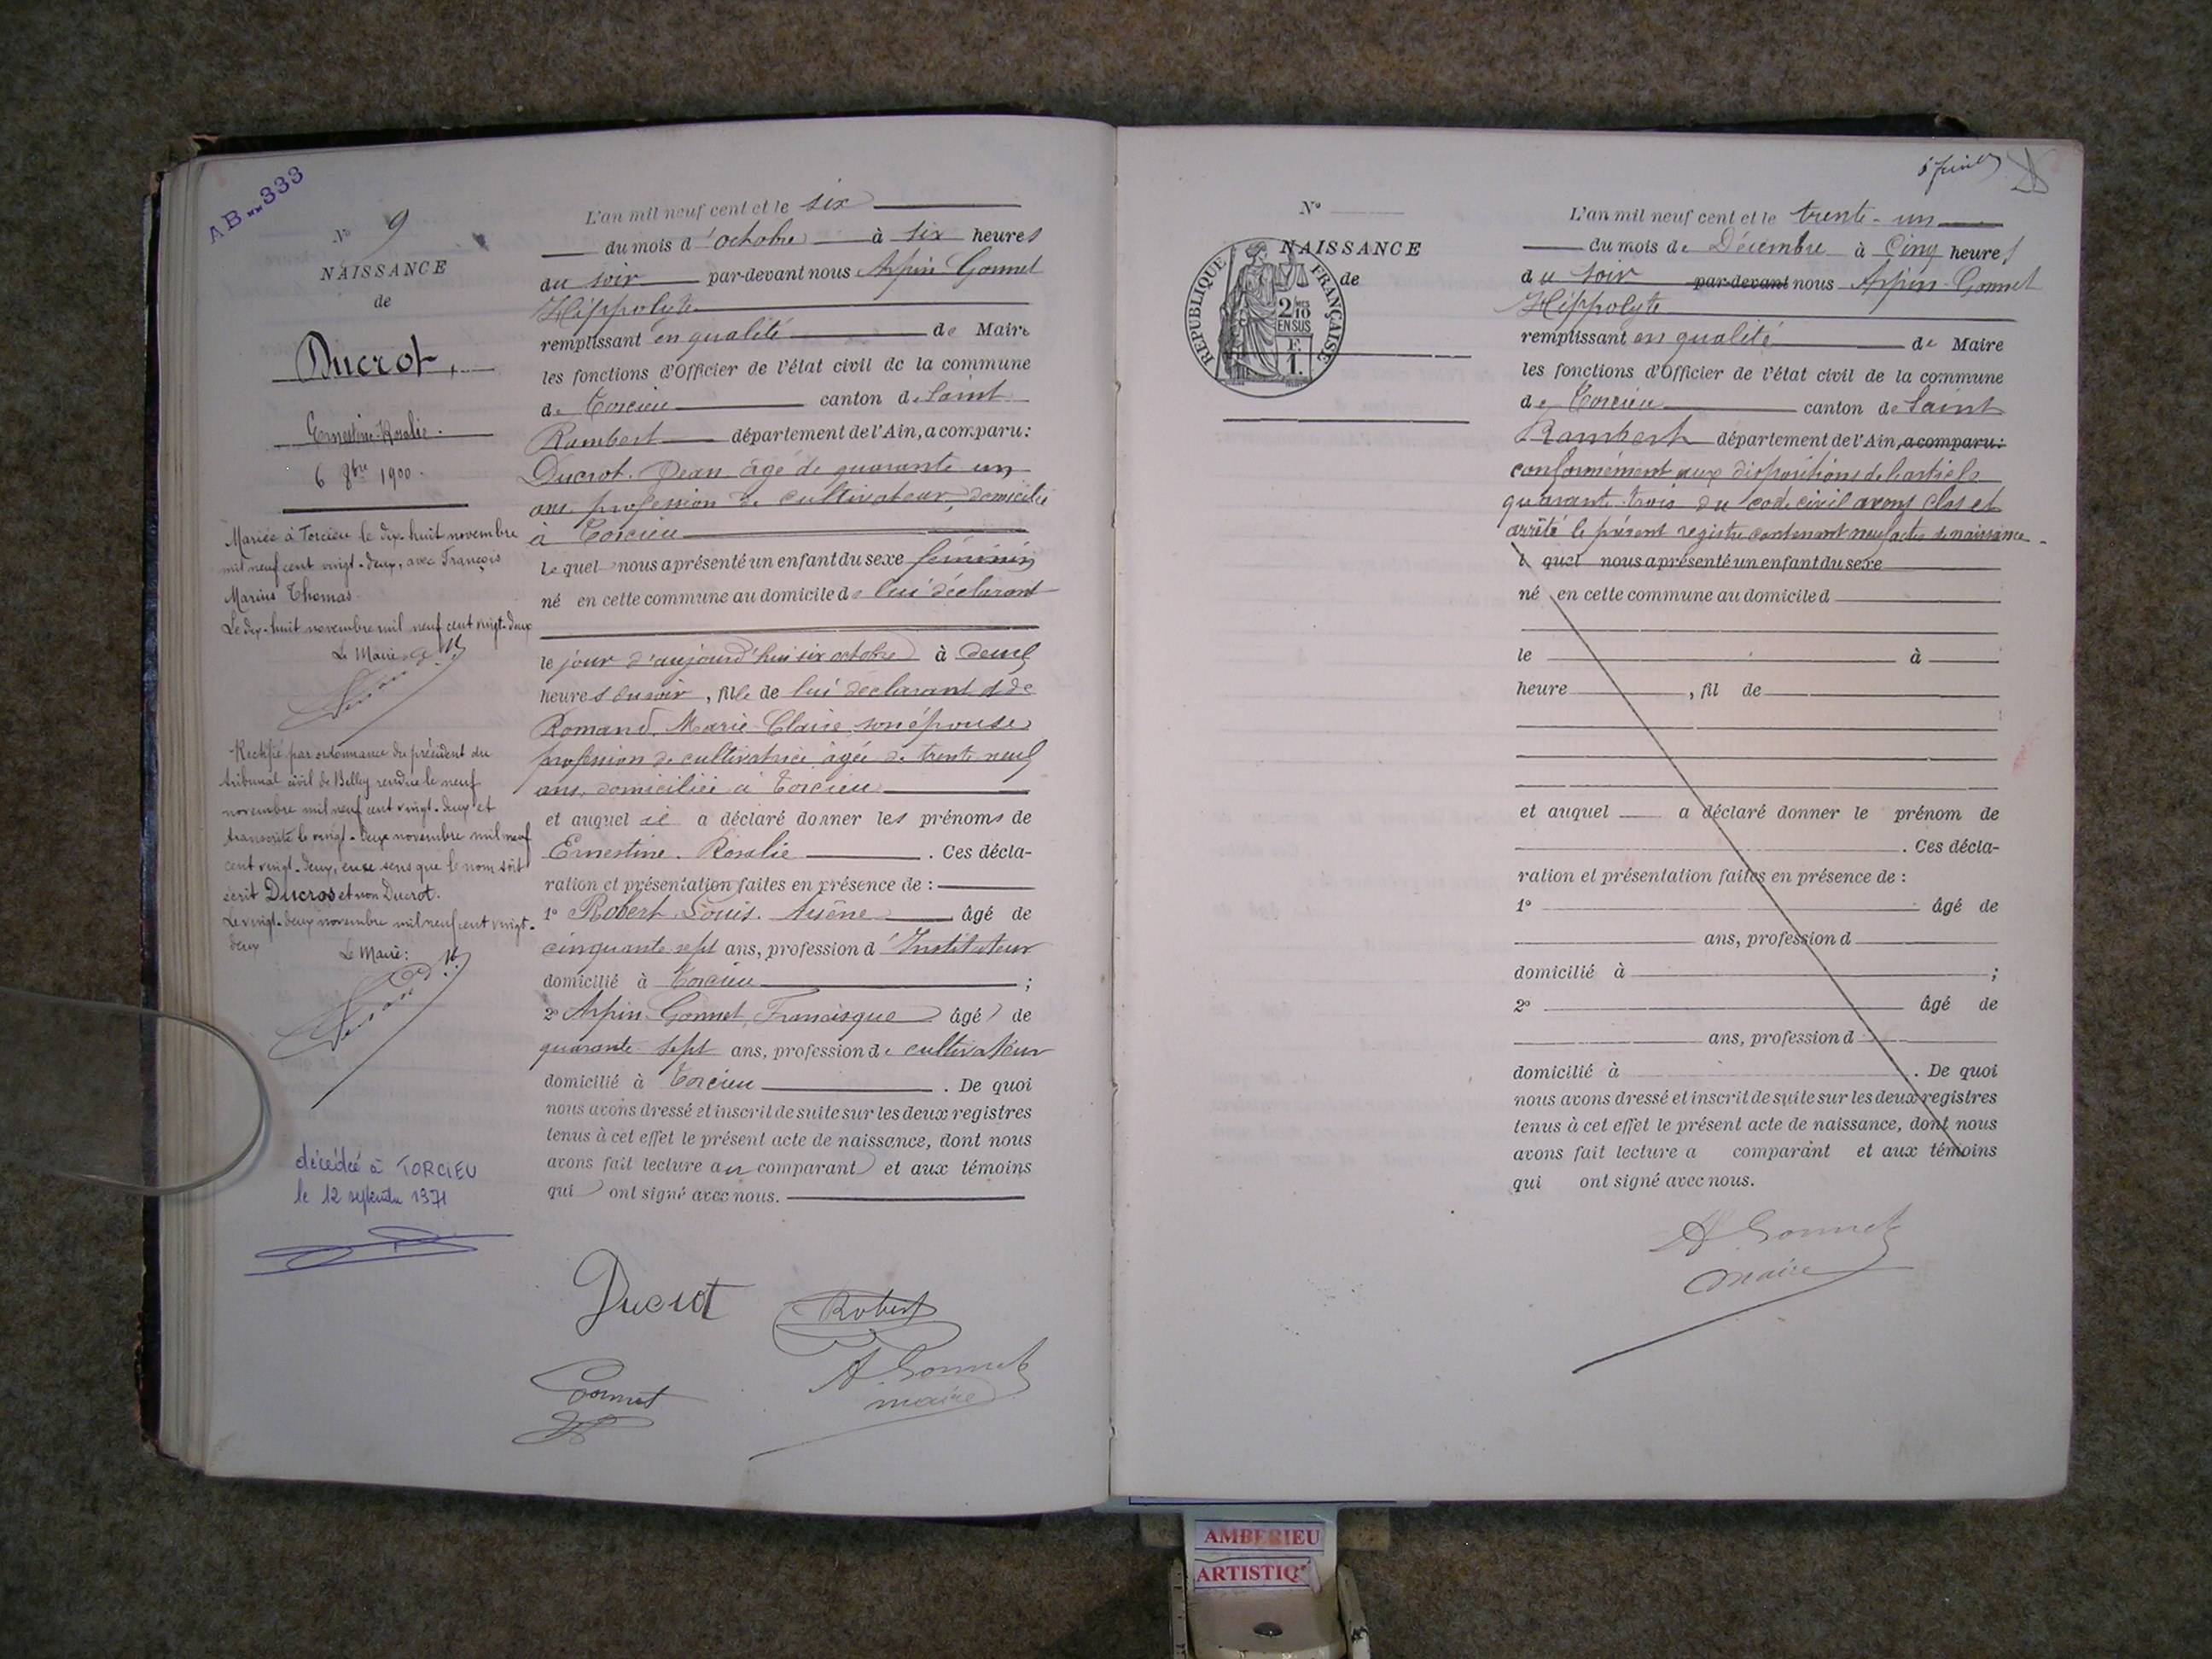 AB..333
N° 9
NAISSANCE
de
Ducrot,
Ernestine-Rosalie.
6 8bre 1900.
Mariée à Torcieu le dix-huit novembre
mil neuf cent vingt-deux, avec François
Marius Thomas.
Le dix-huit novembre mil neuf cent vingt-deux
Le Maire
Rectifié par ordonnance du président du
tribunal civil de Belley rendue le neuf
novembre mil neuf cent vingt-deux et
transcrite le vingt-deux novembre mil neuf
cent vingt-deux, en ce sens que le nom soit
écrit Ducros et non Ducrot.
Le vingt-deux novembre mil neuf cent vingt-
deux
Le Maire:
décédée à TORCIEU
le 12 septembre 1971
L'an mil neuf cent et le six
du mois d'octobre à six heures
du soir par-devant nous Arpin Gonnet
Hippolyte
remplissant en qualité de Maire
les fonctions d'Officier de l'état civil de la commune
de Torcieu canton de Saint
Rambert département de l'Ain, a comparu:
Ducrot Jean âgé de quarante un
ans, profession de cultivateur, domicilié
à Torcieu
lequel nous a présenté un enfant du sexe féminin
né en cette commune au domicile de lui déclarant
le jour d'aujourd'hui six octobre à deux
heures du soir, fille de lui déclarant et de
Romand, Marie-Claire son épouse
profession de cultivatrice âgée de trente neuf
ans, domiciliée à Torcieu
et auquel il a déclaré donner les prénoms de
Ernestine. Rosalie. Ces décla-
ration et présentation faites en présence de :
1° Robert Louis. Arsène âgé de
cinquante sept ans, profession d'Instituteur
domicilié à Torcieu ;
2° Arpin-Gonnet, Francisque âgé de
quarante sept ans, profession de cultivateur
domicilié à Torcieu. De quoi
nous avons dressé et inscrit de suite sur les deux registres
tenus à cet effet le présent acte de naissance, dont nous
avons fait lecture au comparant et aux témoins
qui ont signé avec nous.
Ducrot Robert
Gonnet A. Gonnet
maire
5 feuilles
N°
NAISSANCE
de
REPUBLIQUE FRANÇAISE
2/10 EN SUS
F. 1.
L'an mil neuf cent et le trente-un
du mois de Décembre à Cinq heures
du soir par-devant nous Arpin-Gonnet
Hippolyte
remplissant en qualité de Maire
les fonctions d'Officier de l'état civil de la commune
de Torcieu canton de Saint
Rambert département de l'Ain, a comparu:
conformément aux dispositions de l'article
quarante-trois du code civil avons clos et
arrêté le présent registre contenant neuf actes de naissance.
l quel nous a présenté un enfant du sexe
né en cette commune au domicile d
le à
heure , fil de
et auquel a déclaré donner le prénom de
. Ces décla-
ration et présentation faites en présence de :
1° âgé de
ans, profession d
domicilié à ;
2° âgé de
ans, profession d
domicilié à . De quoi
nous avons dressé et inscrit de suite sur les deux registres
tenus à cet effet le présent acte de naissance, dont nous
avons fait lecture a comparant et aux témoins
qui ont signé avec nous.
A. Gonnet
maire
AMBERIEU
ARTISTIQ